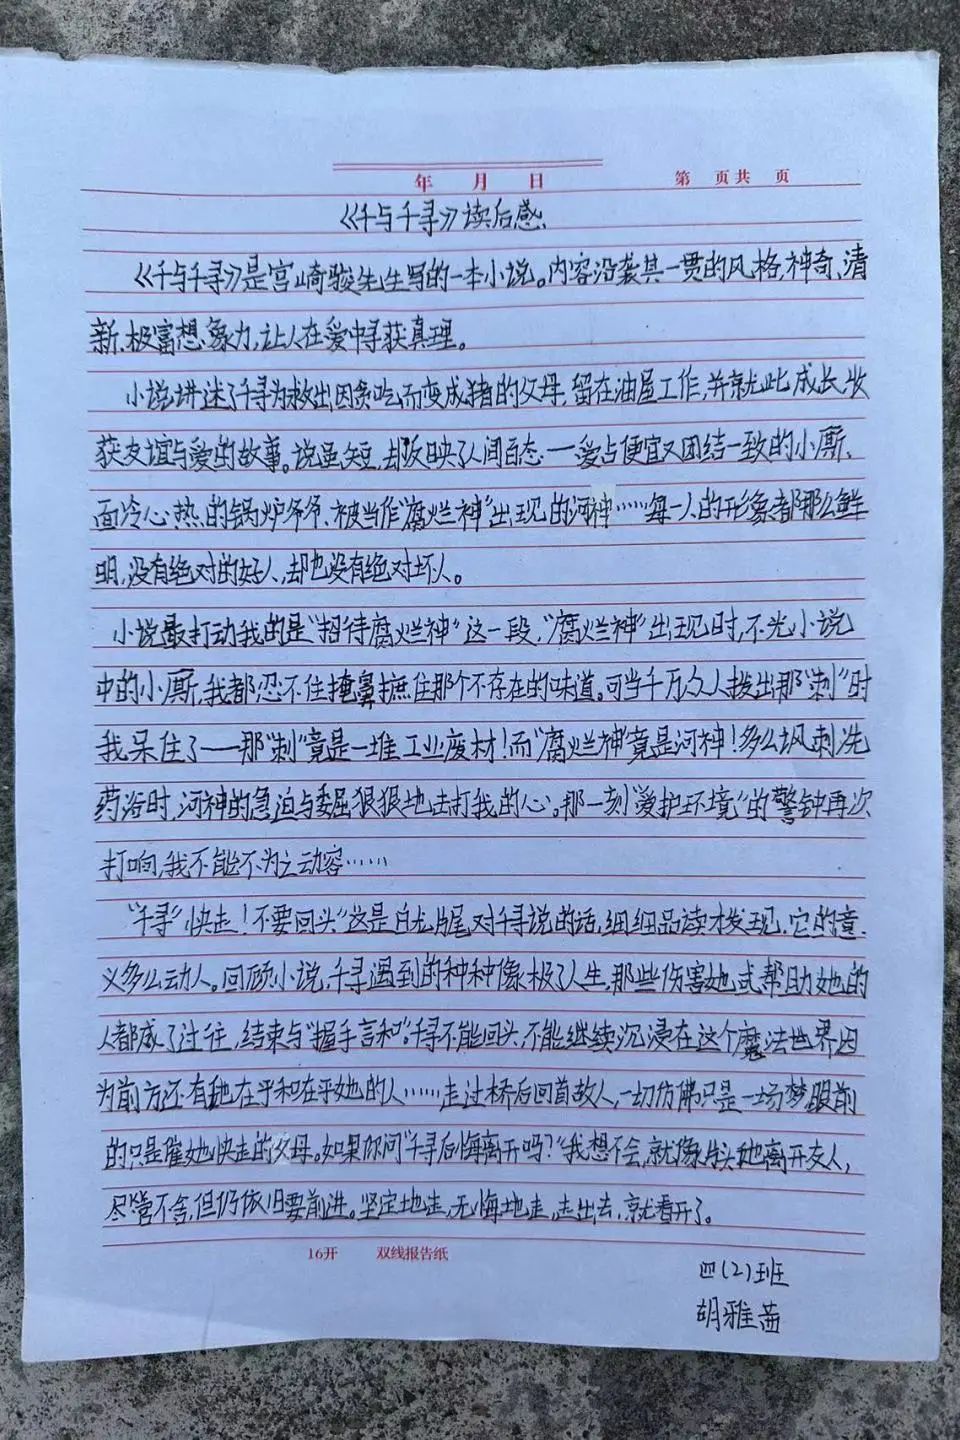 年 月 日 第 页共 页
《千与千寻》读后感
《千与千寻》是宫崎骏先生写的一本小说。内容沿袭其一贯的风格,神奇、清
新、极富想象力,让人在爱中寻获真理。
小说讲述了千寻为救出因贪吃而变成猪的父母,留在油屋工作,并就此成长、收
获友谊与爱的故事。说虽短,却反映了人间百态——爱占便宜又团结一致的小厮、
面冷心热的锅炉爷爷、被当作“腐烂神”出现的河神……每一人的形象都那么鲜
明,没有绝对的好人,却也没有绝对坏人。
小说最打动我的是“招待腐烂神”这一段,“腐烂神”出现时,不光小说
中的小厮,我都忍不住掩鼻摭住那个不存在的味道。可当千万众人拨出那“刺”时
我呆住了——那“刺”竟是一堆工业废材!而“腐烂神”竟是河神!多么讽刺,洗
药浴时,河神的急迫与委屈狠狠地击打我的心。那一刻“爱护环境”的警钟再次
打响,我不能不为之动容……
“千寻”快走!不要回头”这是白龙尾对千寻说的话,细细品读才发现,它的意
义多么动人。回顾小说,千寻遇到的种种像极了人生,那些伤害她或帮助她的
人都成了过往,结束与“握手言和”。千寻不能回头,不能继续沉浸在这个魔法世界因
为前方还有她在乎和在乎她的人……走过桥后回首故人,一切仿佛只是一场梦,眼前
的只是催她快走的父母。如果你问“千寻后悔离开吗?”我想不会,就像当初她离开友人,
尽管不舍,但仍依旧要前进。坚定地走,无悔地走,走出去,就看开了。
16开 双线报告纸
四(2)班
胡雅茜